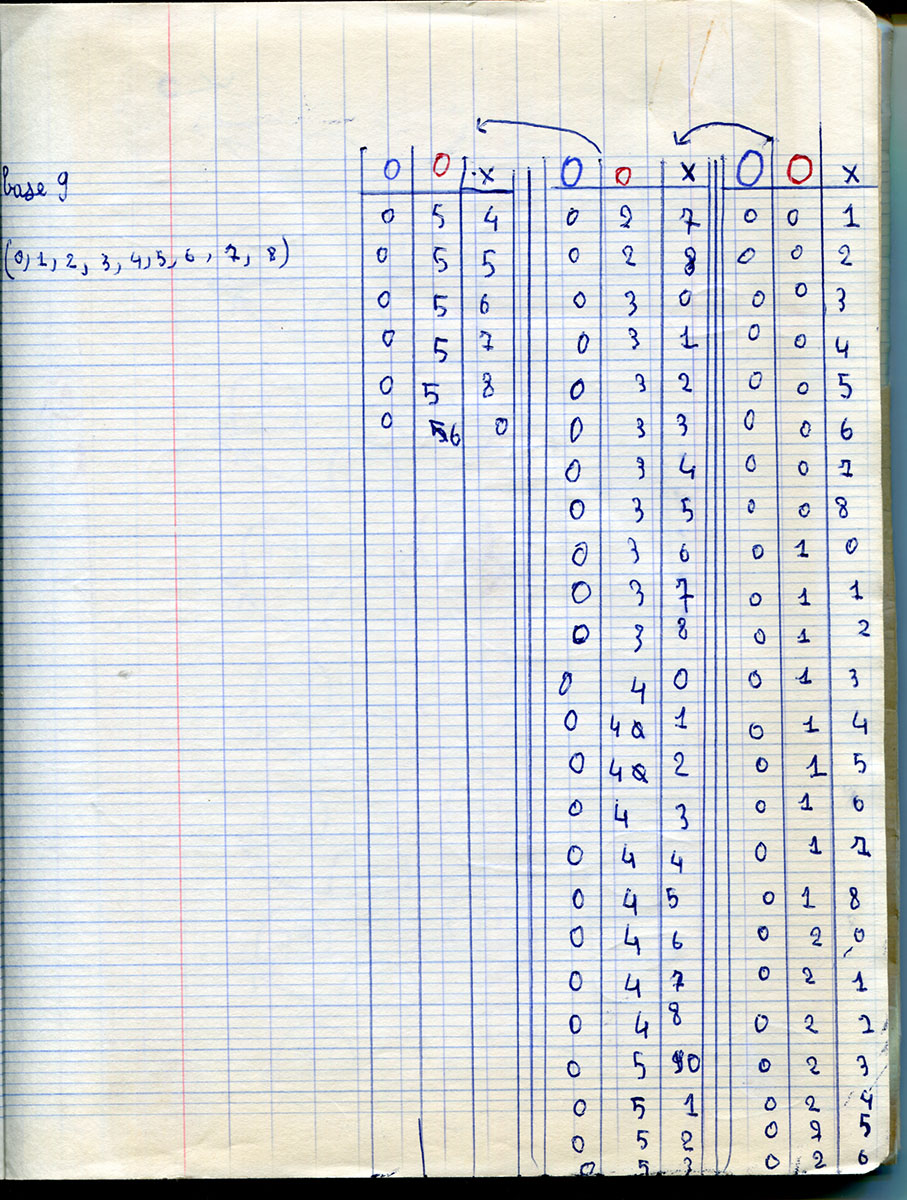 0 0 x 0 0 x 0 0 x
base 9
0 5 4 0 2 7 0 0 1
(0, 1, 2, 3, 4, 5, 6, 7, 8) 0 5 5 0 2 8 0 0 2
0 5 6 0 3 0 0 0 3
0 5 7 0 3 1 0 0 4
0 5 8 0 3 2 0 0 5
0 6 0 0 3 3 0 0 6
0 3 4 0 0 7
0 3 5 0 0 8
0 3 6 0 1 0
0 3 7 0 1 1
0 3 8 0 1 2
0 4 0 0 1 3
0 4 1 0 1 4
0 4 2 0 1 5
0 4 3 0 1 6
0 4 4 0 1 7
0 4 5 0 1 8
0 4 6 0 2 0
0 4 7 0 2 1
0 4 8 0 2 2
0 5 0 0 2 3
0 5 1 0 2 4
0 5 2 0 2 5
0 5 3 0 2 6